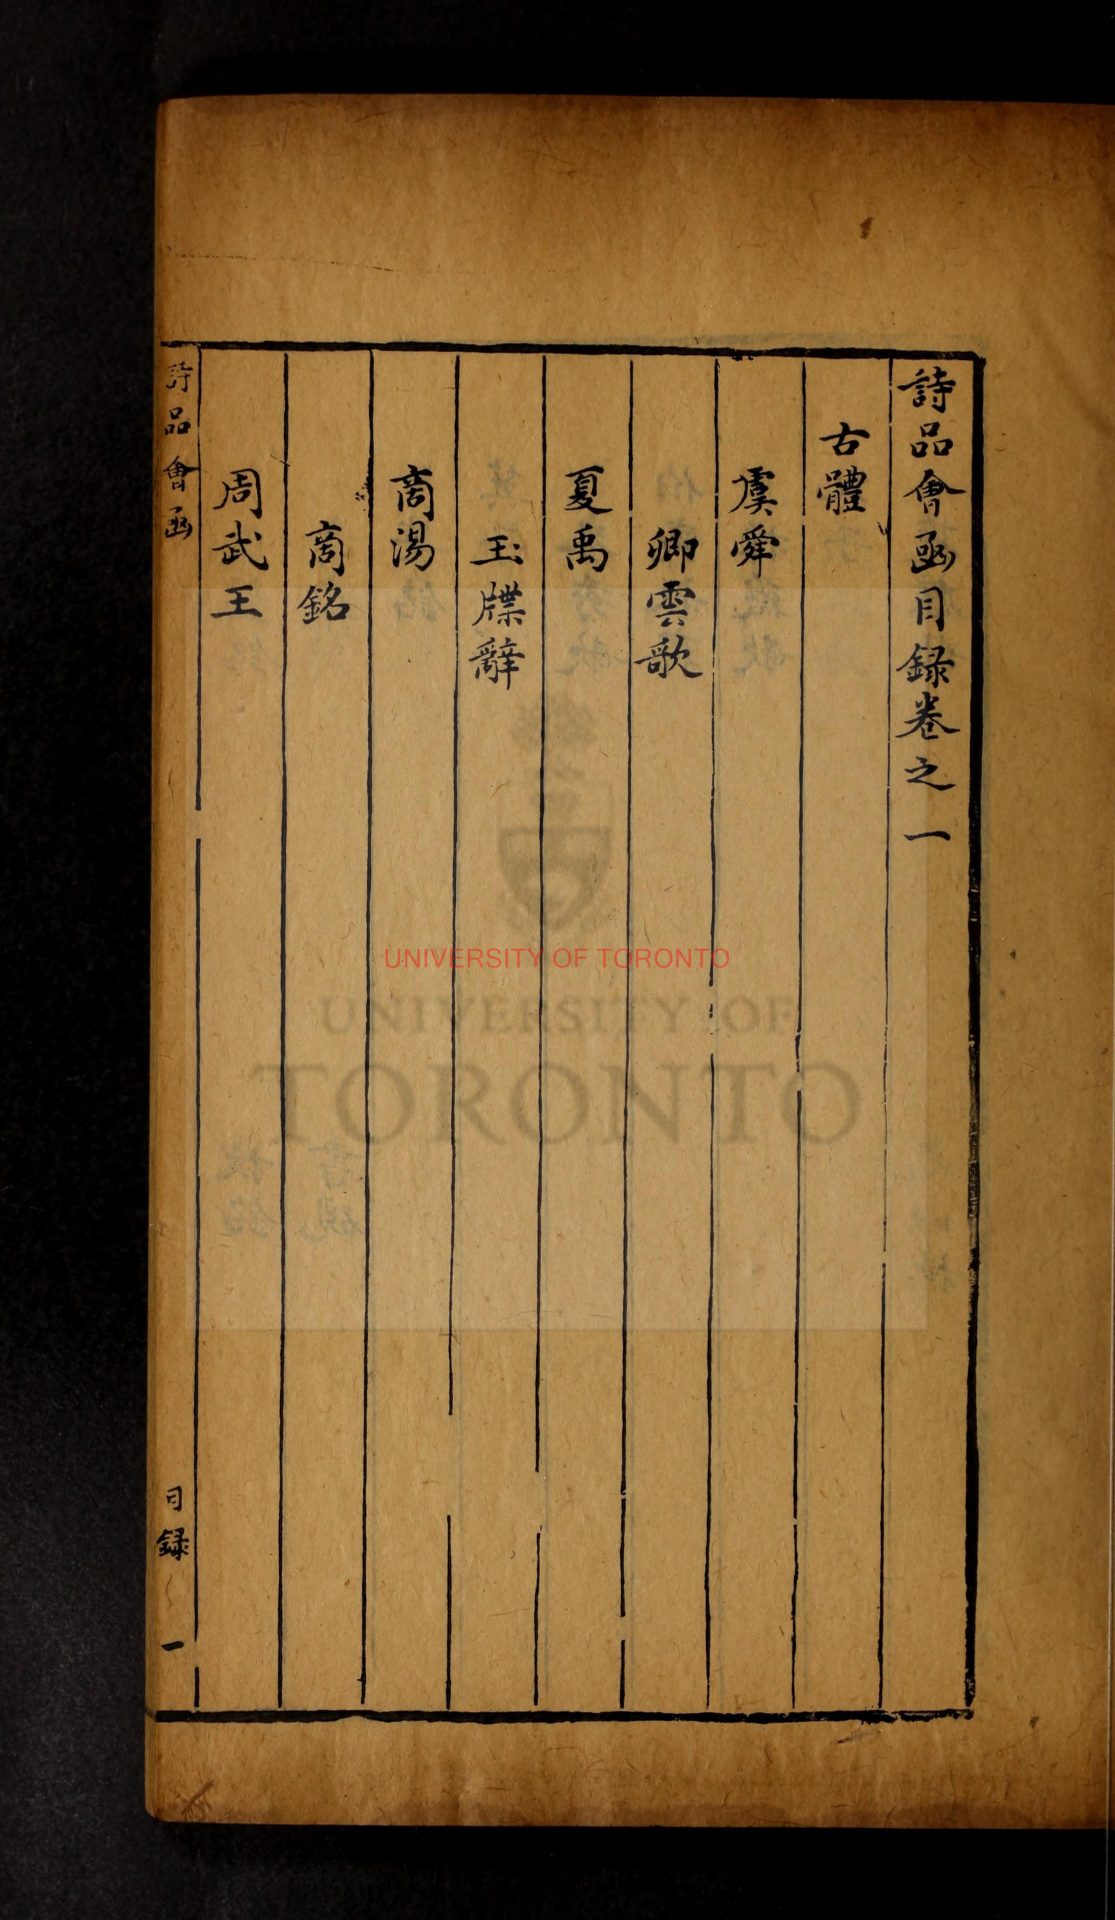 詩品會函目録卷之一
古體
虞舜
卿雲歌
夏禹
玉牒辭
商湯
商銘
周武王
詩品會函
目録
一
UNIVERSITY OF TORONTO
UNIVERSITY OF
TORONTO